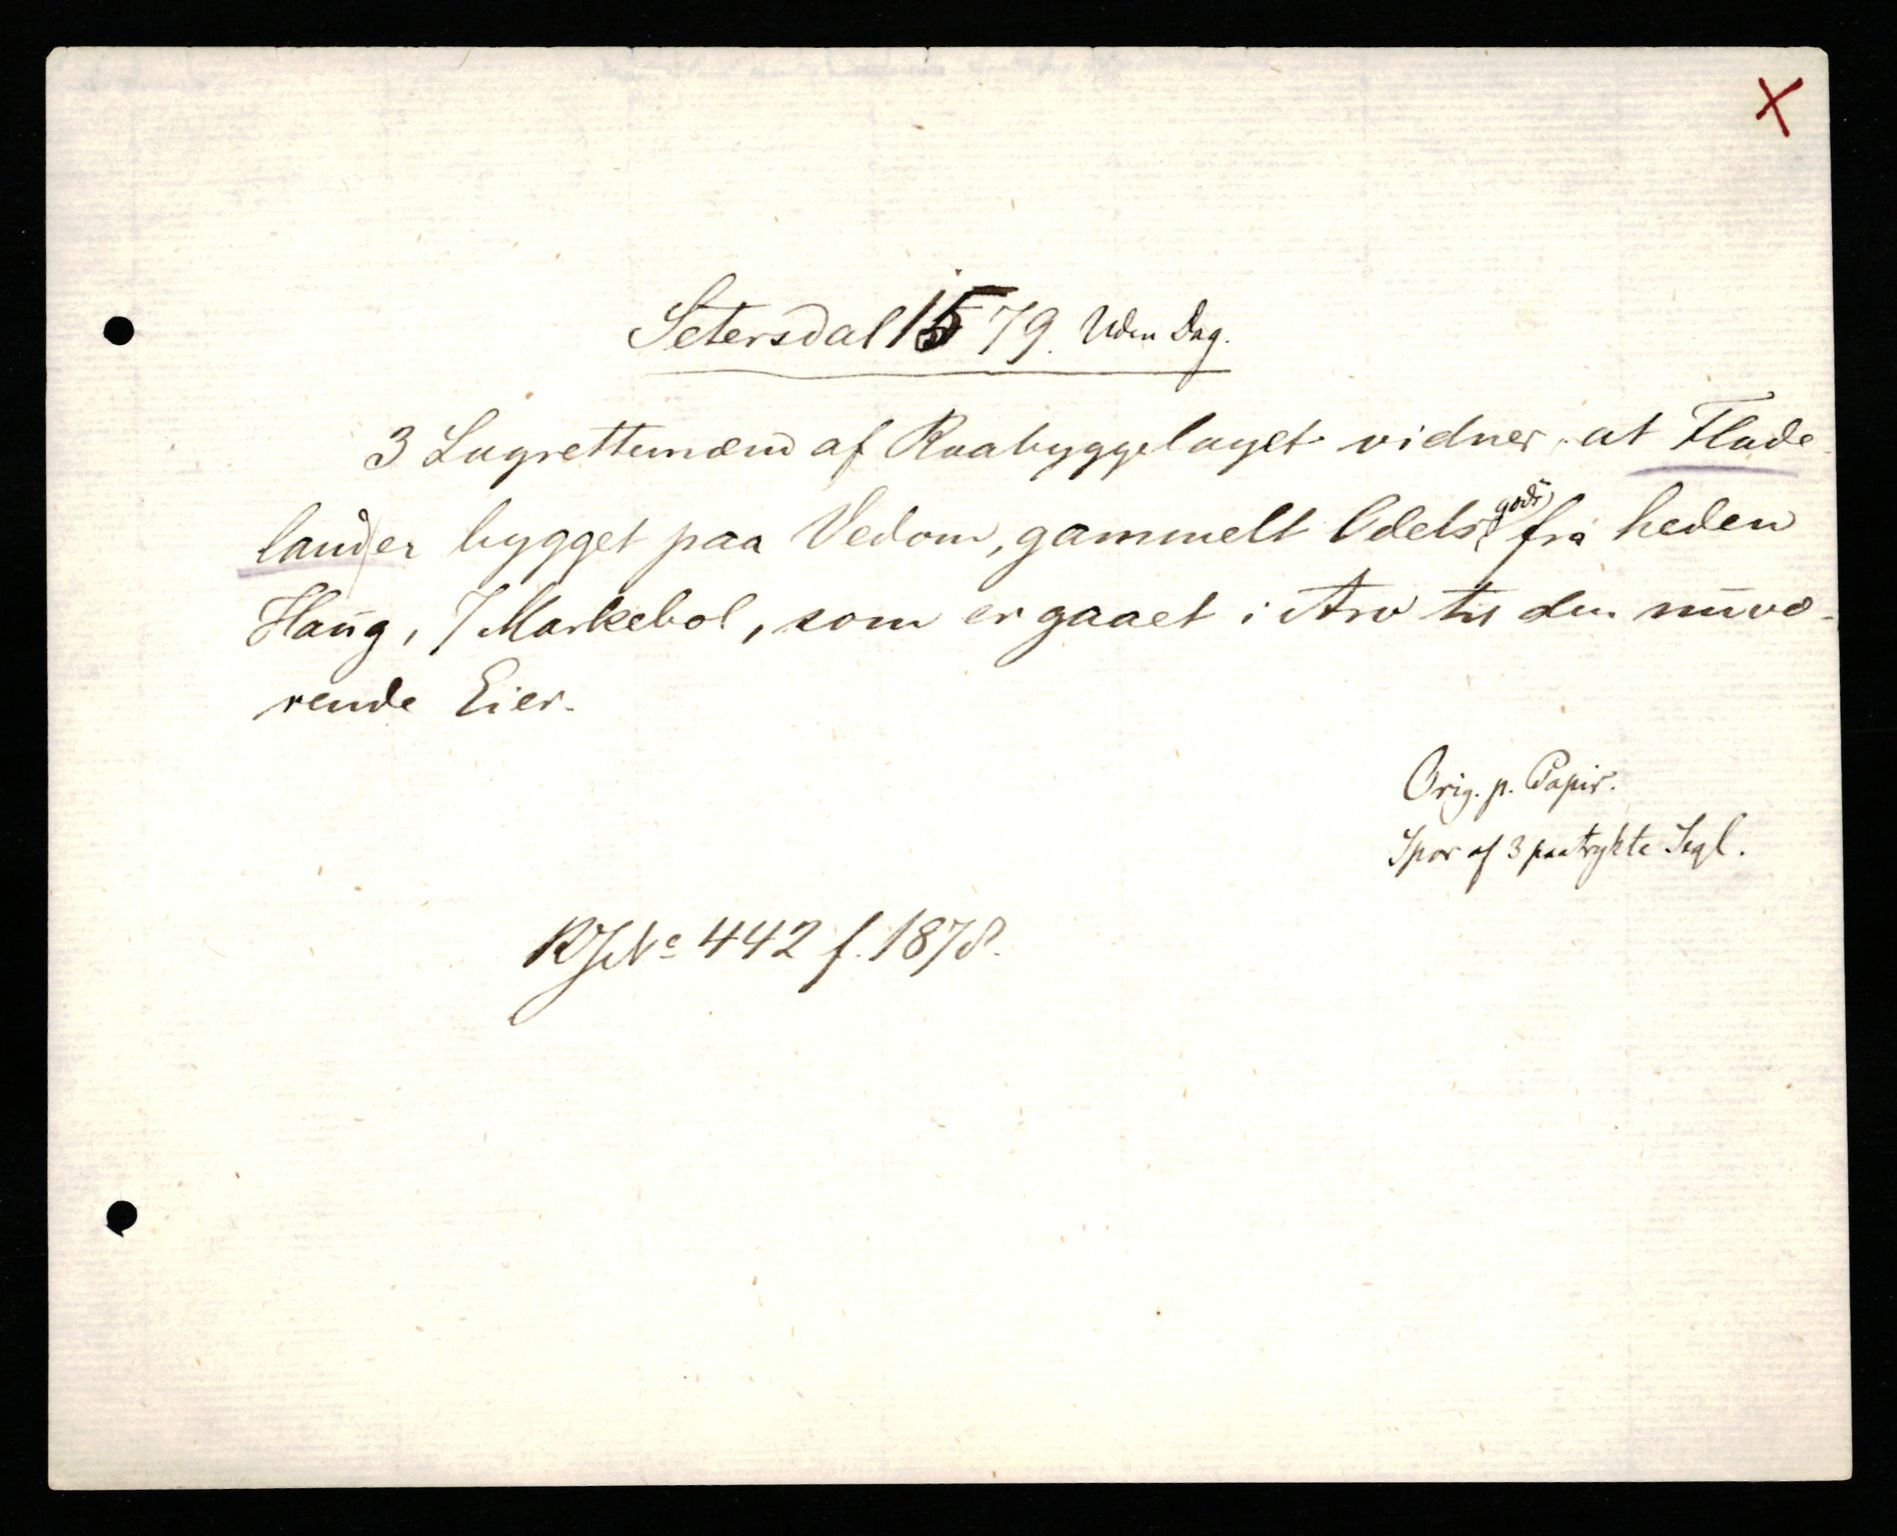 X
Setersdal 1579. Uden Dag.
3 Lagrettemænd af Raabyggelaget vidner, at Flade-
land er bygget paa Vedom, gammelt Odelsgods fra heden
Haug, 7 Markebol, som er gaaet i Arv til den nuvæ-
rende Eier.
Orig. p. Papir.
Spor af 3 paatrykte Segl.
RJNo 442 f. 1878.